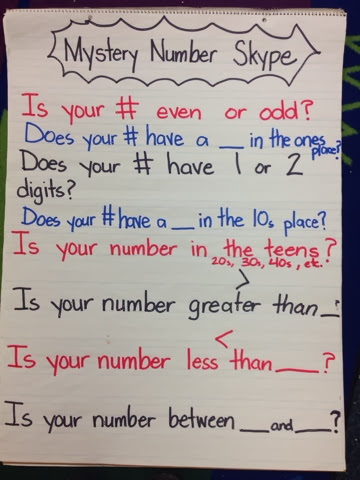 Mystery Number Skype
Is your # even or odd?
Does your # have a __ in the ones place?
Does your # have 1 or 2
digits?
Does your # have a __ in the 10s place?
Is your number in the teens?
20s, 30s, 40s, etc.
>
Is your number greater than __?
<
Is your number less than ____?
Is your number between ___ and ___?